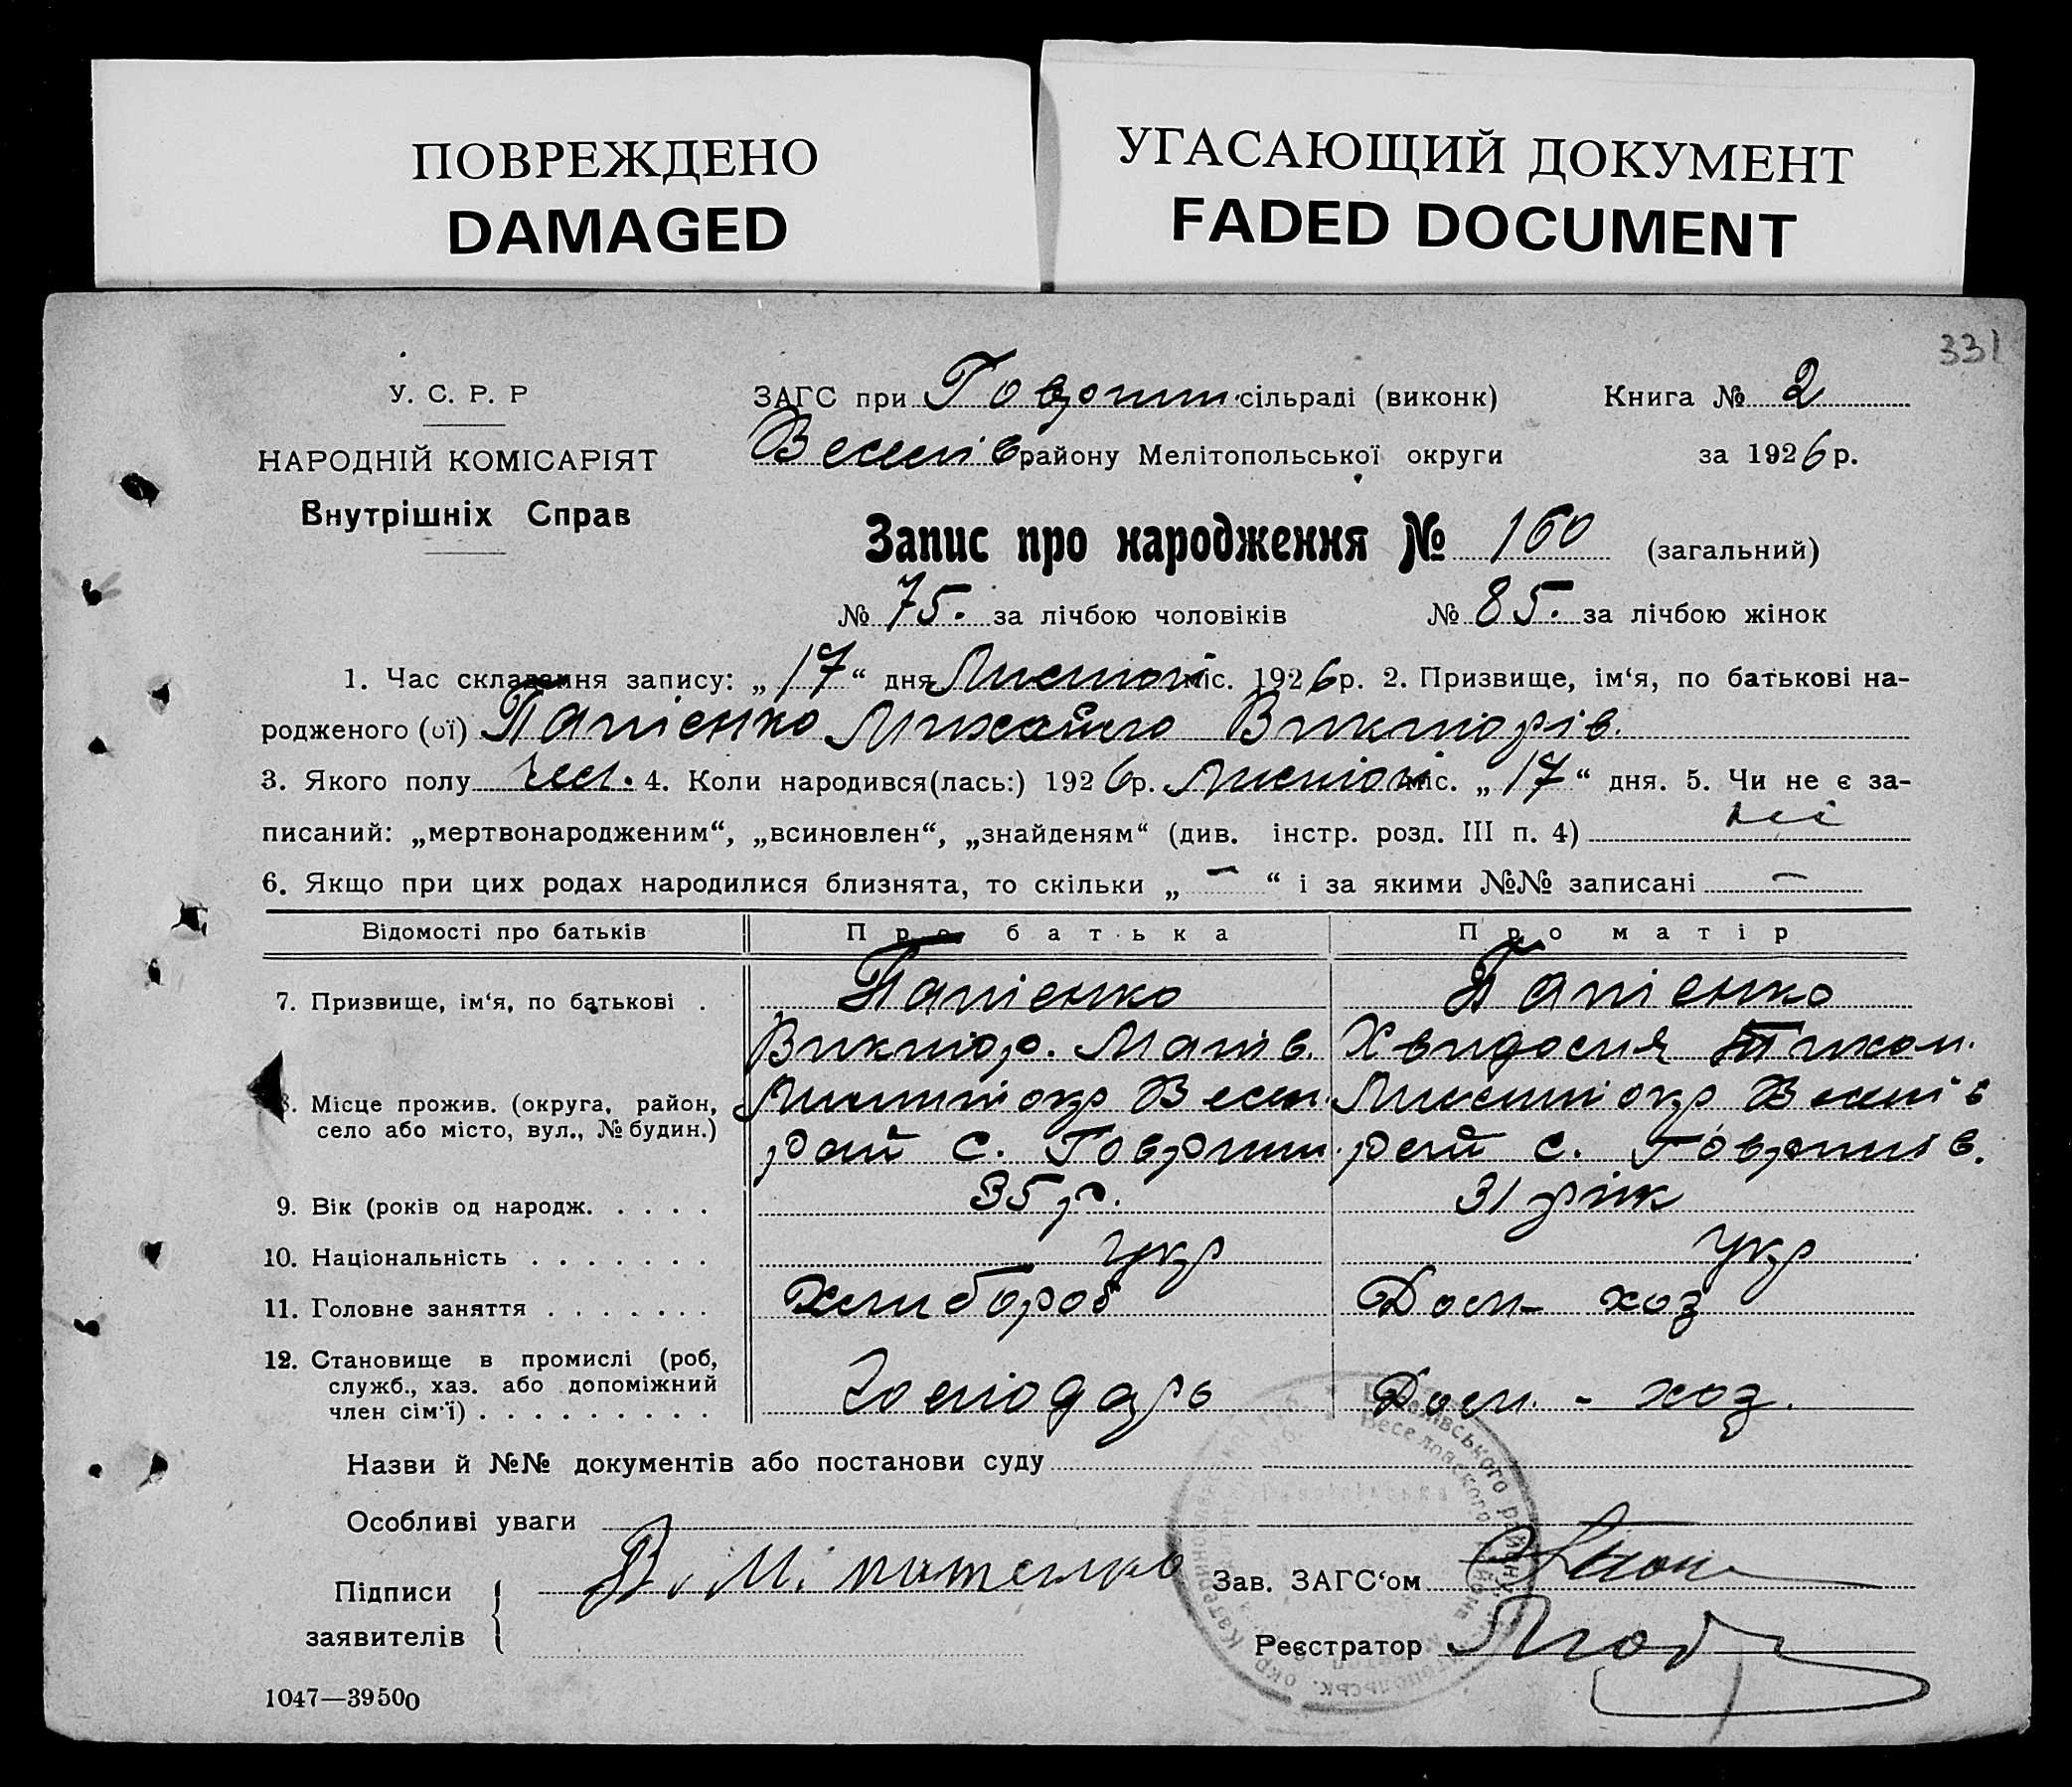 ПОВРЕЖДЕНО
DAMAGED
УГАСАЮЩИЙ ДОКУМЕНТ
FADED DOCUMENT
331
У. С. Р. Р
НАРОДНІЙ КОМІСАРІЯТ
Внутрішніх Справ
ЗАГС при сільраді (виконк) Книга № 2
Веселів району Мелітопольської округи за 1926 р.
Запис про народження № 160 (загальний)
№ 75. за лічбою чоловіків № 85. за лічбою жінок
1. Час складання запису: „17“ дня міс. 1926 р. 2. Призвище, ім‘я, по батькові на-
родженого (ої) Михайло Викторів.
3. Якого полу 4. Коли народився(лась:) 1926 р. міс. „17“ дня. 5. Чи не є за-
писаний: „мертвонародженим“, „всиновлен“, „знайденям“ (див. інстр. розд. III п. 4) ні
6. Якщо при цих родах народилися близнята, то скільки „ — “ і за якими №№ записані —
Відомості про батьків Про батька Про матір
7. Призвище, ім‘я, по батькові .
Виктор. Хвидосия Тихон.
8. Місце прожив. (округа, район, село або місто, вул., № будин.)
окр Весел. окр Веселів
рай с. рай с.
9. Вік (років од народж. . . . . 35 р. 31 рік
10. Національність . . . . . . . Укр Укр
11. Головне заняття . . . . . . . Хлибороб Дом- хоз
12. Становище в промислі (роб, служб., хаз. або допоміжний член сім‘ї) . . . . . . . . . Господарь Дом. - хоз.
Назви й №№ документів або постанови суду
Особливі уваги
Підписи
заявителів
Зав. ЗАГС‘ом
Реєстратор
1047—39500